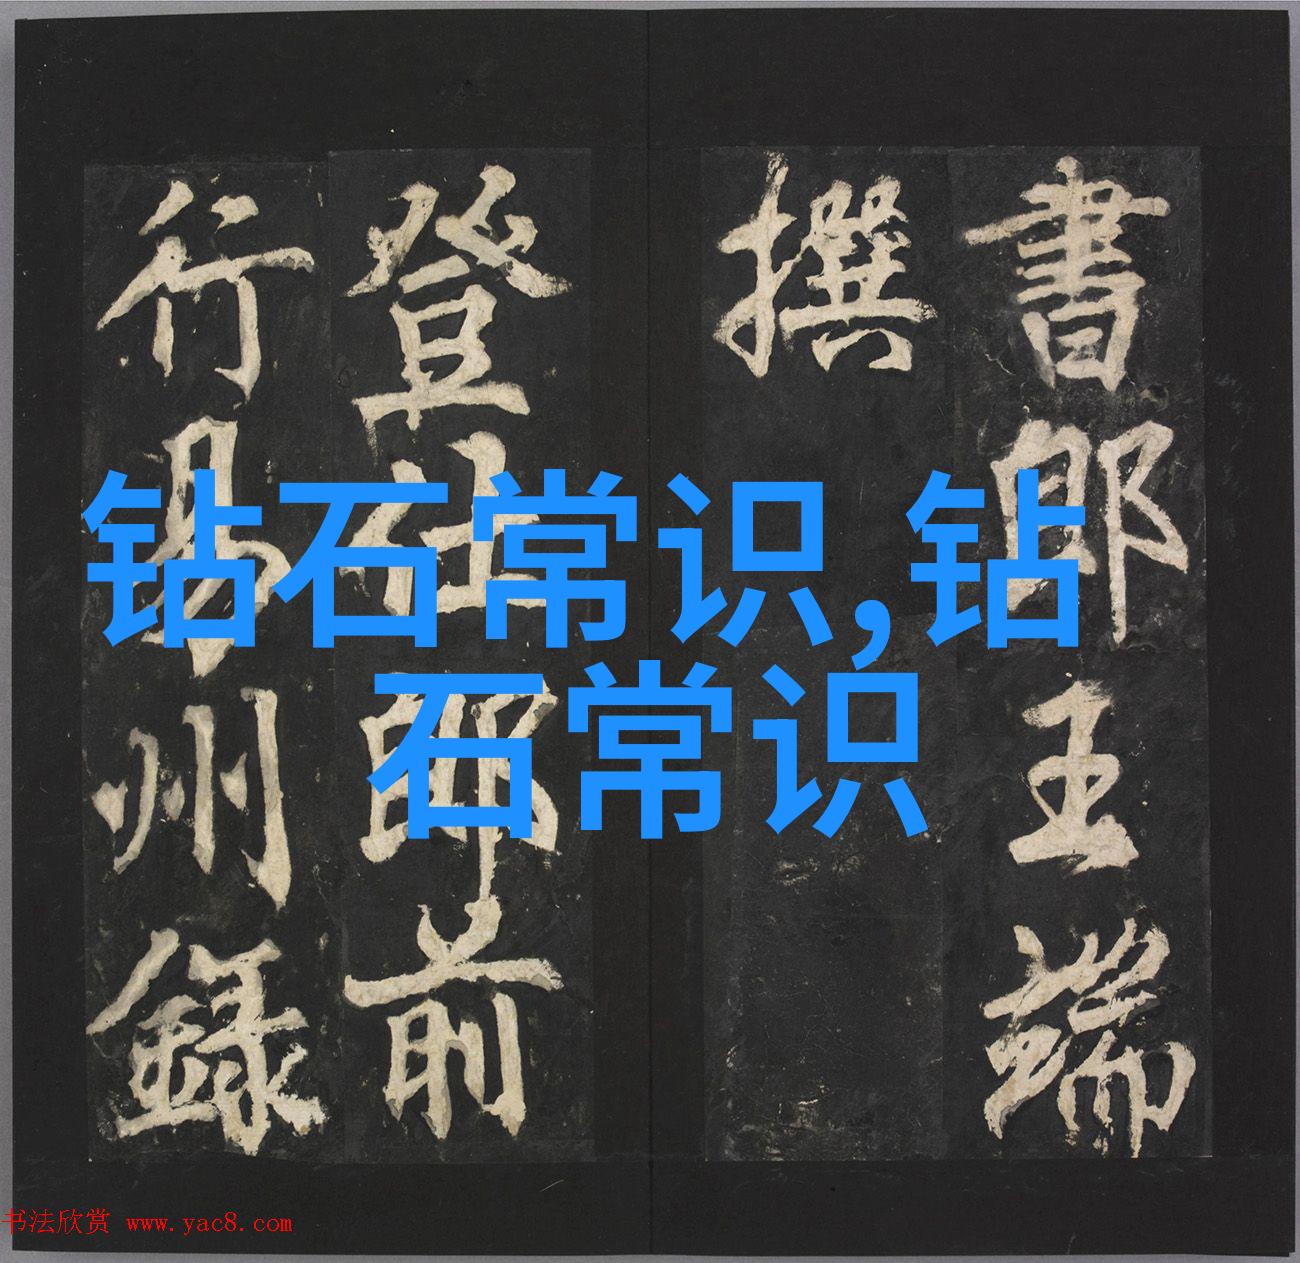 書郎王端
撰
登仕郎前
行易州録
钻石常识,钻
石常识
书法欣赏 www.yac8.com